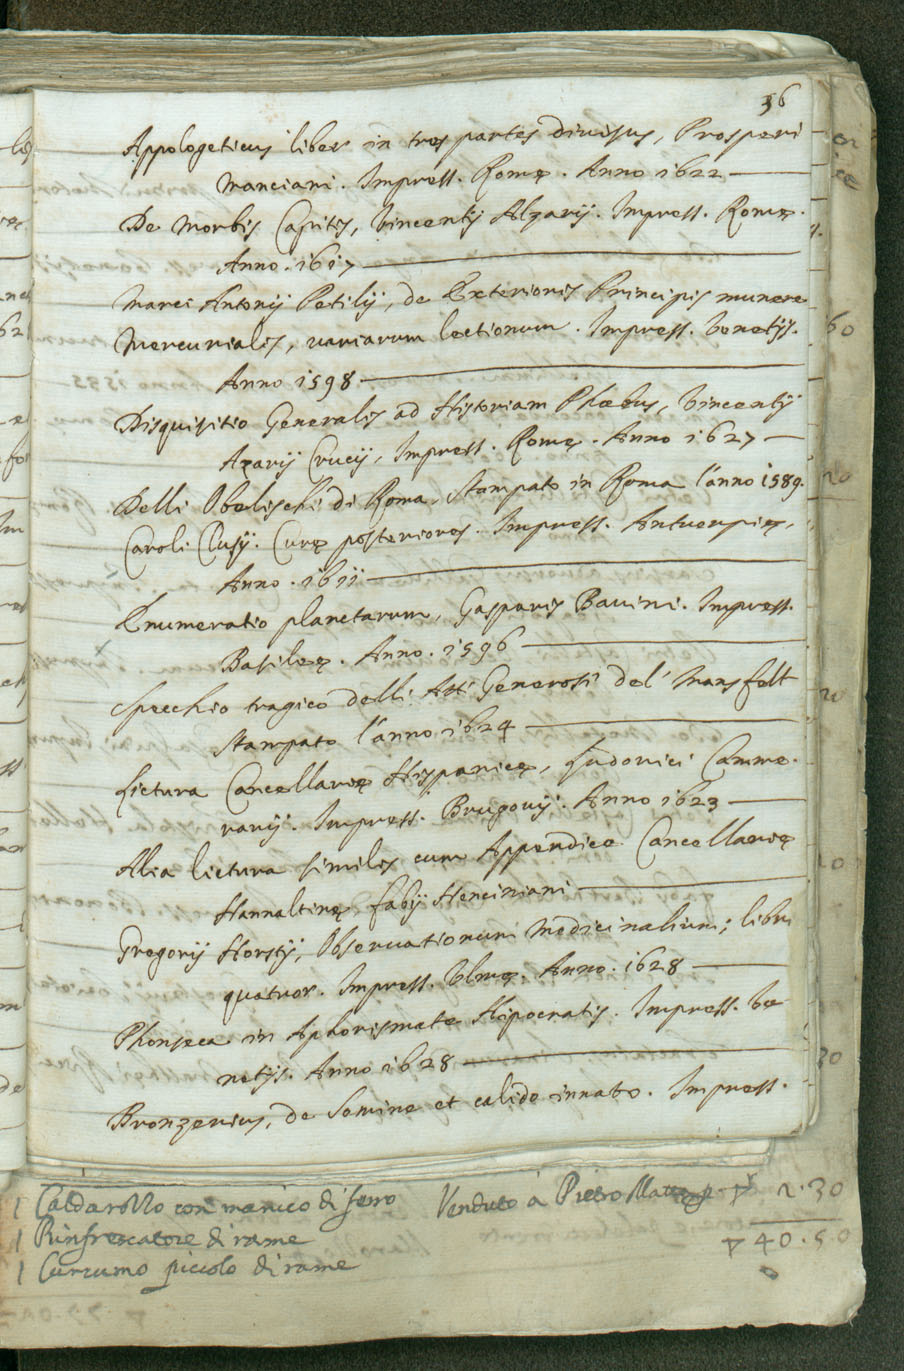 36
Appologeticus liber in tres partes diuisus, Prosperi
Manciani. Impress. Romę. Anno 1622
De Morbis Capitis, Vincentij Alzarij. Impress. Romę.
Anno. 1617
Marci Antonij Petilij, de Exterioris Principis munere
Mercurialis, uariarum lectionum. Impress. Venetijs.
Anno 1598
Disquisitio Generalis ad Historiam Phœtus, Vincentij
Azarij Crucij, Impress. Romę. Anno 1627
Delli Obelischi di Roma. Stampato in Roma l'anno 1589.
Caroli Clusij. Curę posteriores. Impress. Antuerpię,
Anno. 1611
Enumeratio planetarum, Gasparis Bauini. Impress.
Basileę. Anno. 1596
Specchio tragico delli Atti Generosi del Mansfelt
Stampato l'anno 1624
Lictura Cancellarię Hispanicę, Ludouici Camme.
rarij Impress. Brugouij. Anno 1623
Alia lictura similis cum Appendice Cancellarię
Hannaltinę, Fabij Henciniani
Gregorij Horstij, Obseruationum Medicinalium; libri
quatuor. Impress. Vlmę. Anno. 1628
Phonseca in Aphorismata Hipocratis. Impress. Ve
netijs. Anno 1628
Bronzerius, de Semine et calido innato. Impress.
1 Caldarollo con manico di ferro Venduto à Pietro 2.30
1 Rinfrescatore di rame 40.50
1 Cuccumo piccolo di rame